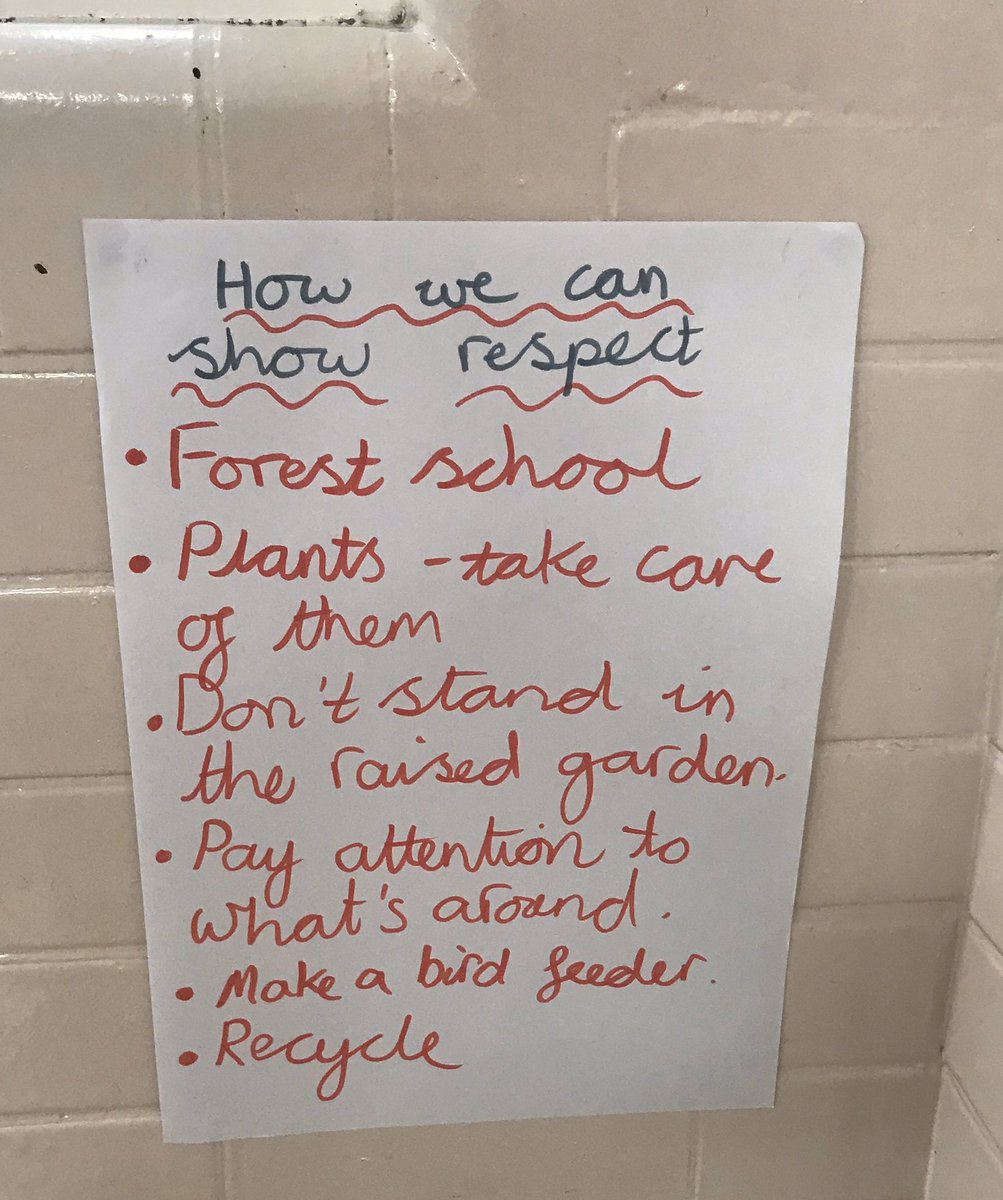 How we can
show respect
• Forest school
• Plants - take care
of them
• Don't stand in
the raised garden.
• Pay attention to
what's around.
• Make a bird feeder.
• Recycle